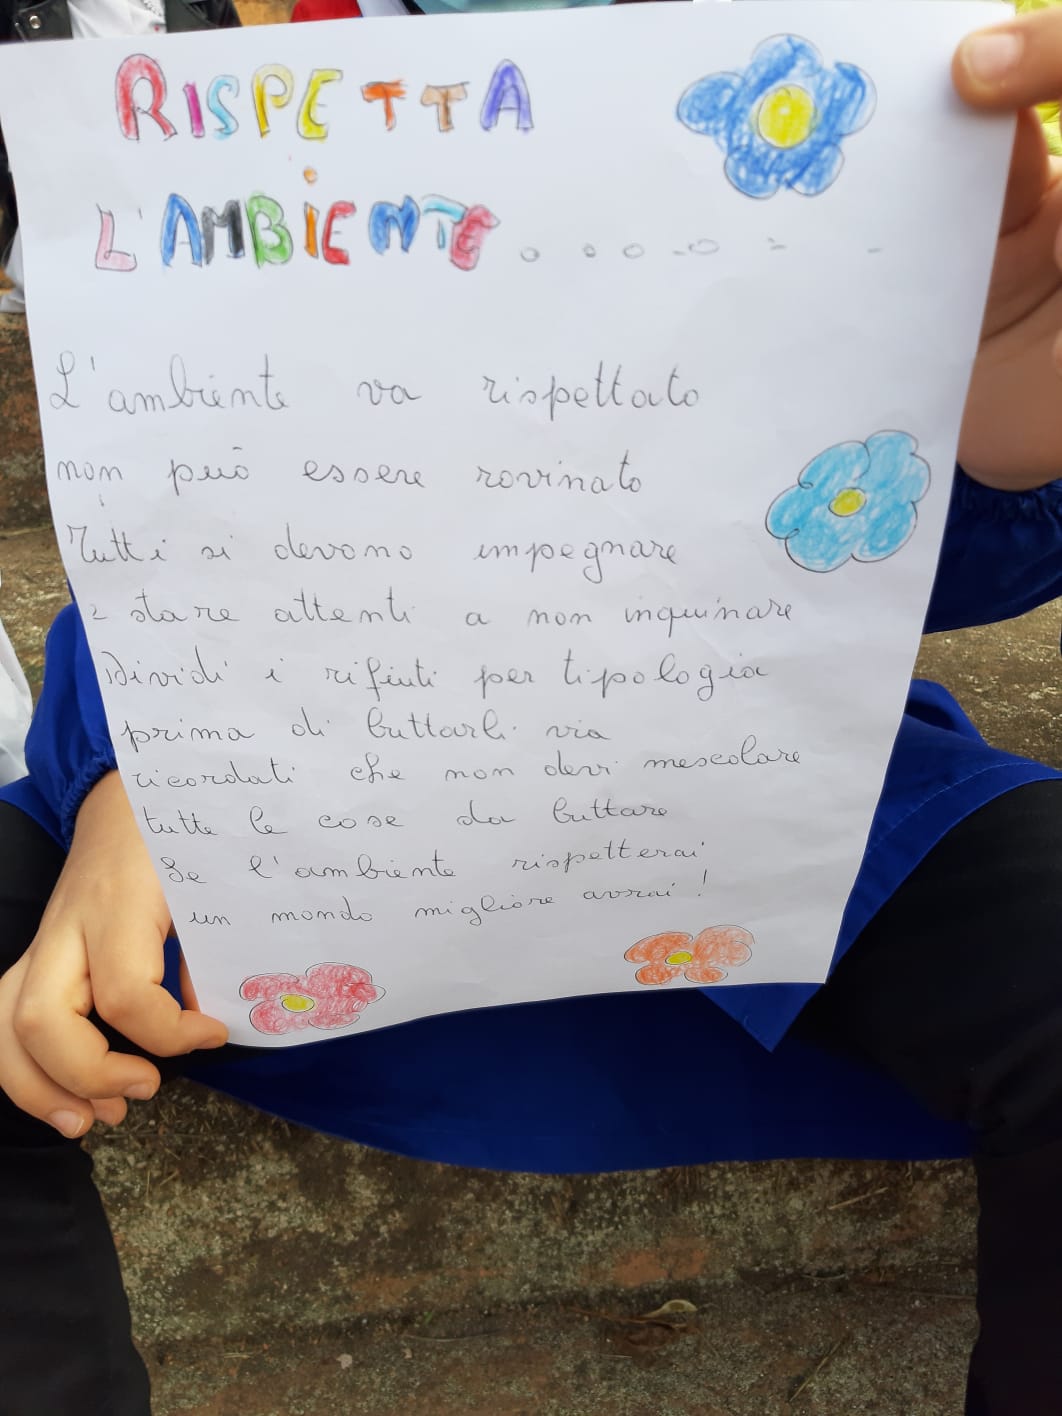 RISPETTA
L'AMBIENTE.......
L'ambiente va rispettato
non può essere rovinato
Tutti si devono impegnare
e stare attenti a non inquinare
Dividi i rifiuti per tipologia
prima di buttarli via
ricordati che non devi mescolare
tutte le cose da buttare
Se l'ambiente rispetterai
un mondo migliore avrai!